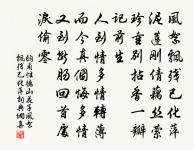 風絮飄殘已化萍
泥蓮剛倩藕絲縈
珍重別拈香一瓣
記前生
人到情多情轉薄
而今真個悔多情
又到斷腸回首處
淚偷零
納蘭性德山花子風絮
飄殘已化萍詞典網書